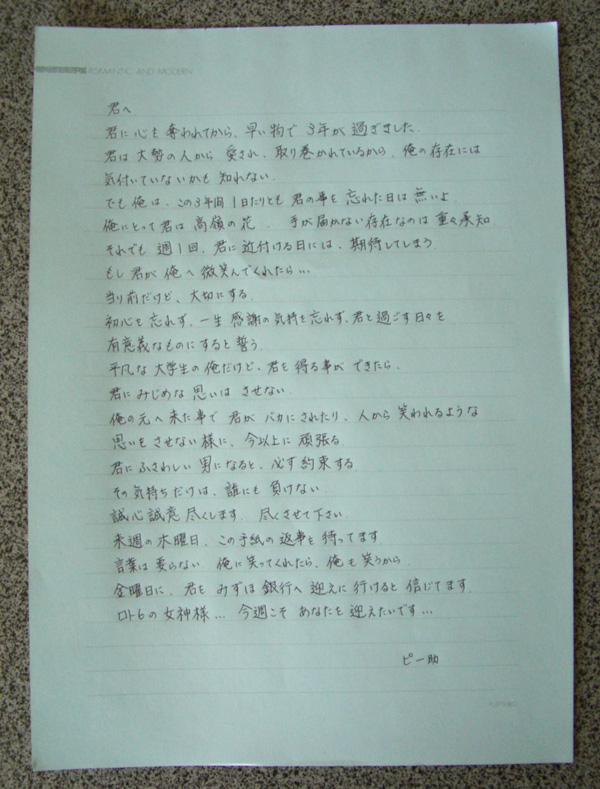 ROMANTIC AND MODERN
君へ
君に心を奪われてから、早い物で 3年が過ぎました.
君は大勢の人から 愛され、取り巻かれているから、俺の存在には
気付いていないかも知れない.
でも俺は、この3年間1日たりとも君の事を忘れた日は無いよ.
俺にとって君は高嶺の花. 手が届かない存在なのは重々承知.
それでも週1回、君に近付ける日には、期待してしまう.
もし君が俺へ微笑んでくれたら…
当り前だけど、大切にする.
初心を忘れず、一生感謝の気持を忘れず、君と過ごす日々を
有意義なものにすると誓う.
平凡な大学生の俺だけど、君を得る事ができたら.
君にみじめな思いはさせない.
俺の元へ来た事で君がバカにされたり、人から笑われるような
思いをさせない様に、今以上に頑張る.
君にふさわしい男になると、必ず約束する.
その気持ちだけは、誰にも負けない.
誠心誠意尽くします. 尽くさせて下さい.
来週の木曜日、この手紙の返事を待ってます.
言葉は要らない 俺に笑ってくれたら、俺も笑うから.
金曜日に、君を みずほ銀行へ迎えに行けると信じてます.
ロト6の女神様… 今週こそあなたを迎えたいです…
ピー助